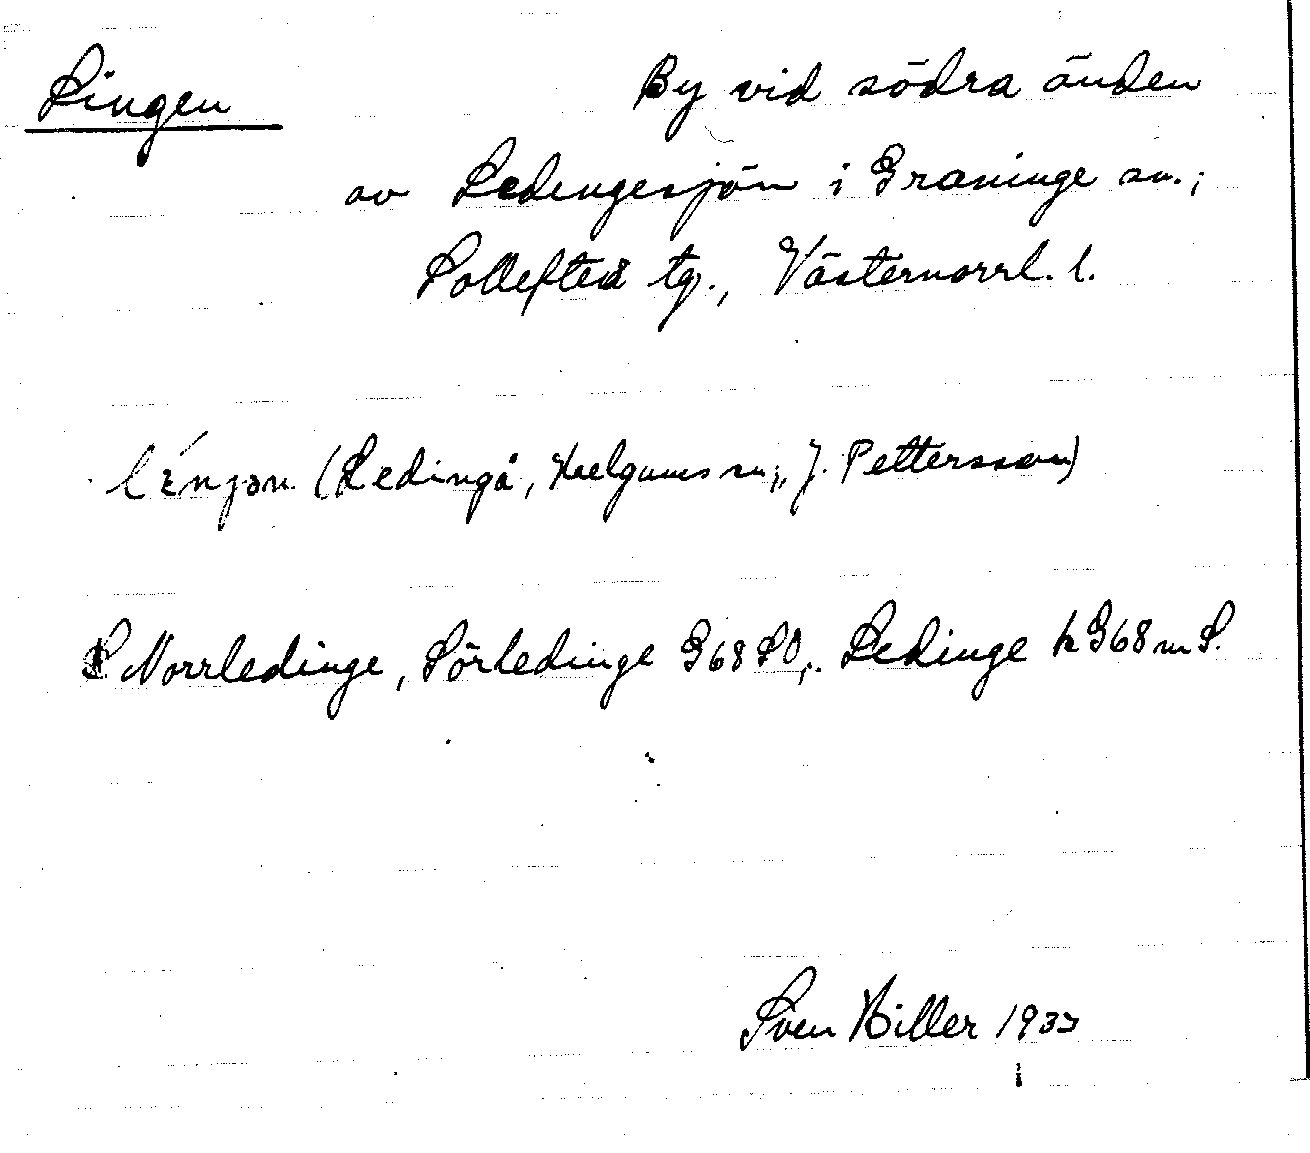 Lingen
By vid södra änden
av Ledingesjön i Graninge sn.,
Sollefteå tg., Västernorrl. l.
léŋǝn (Ledingå, Helgums sn., J. Pettersson)
S Norrledinge, Sörledinge G68SO, Ledinge k G68 m S.
Sven Hiller 1937